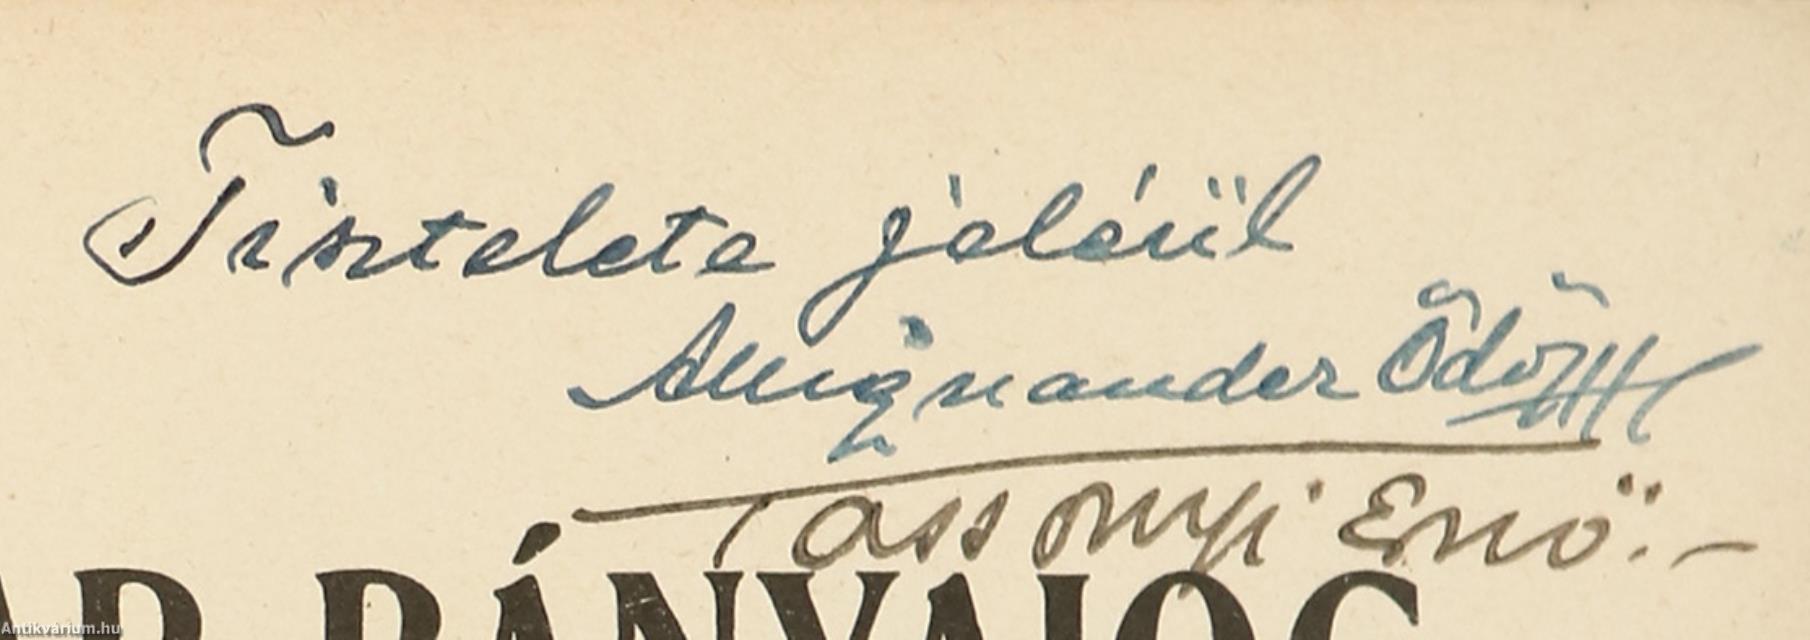 Tisztelete jeléül
Alliquander Ödön
Tassonyi Ernő.-
BÁNYAJOG
Antikvárium.hu